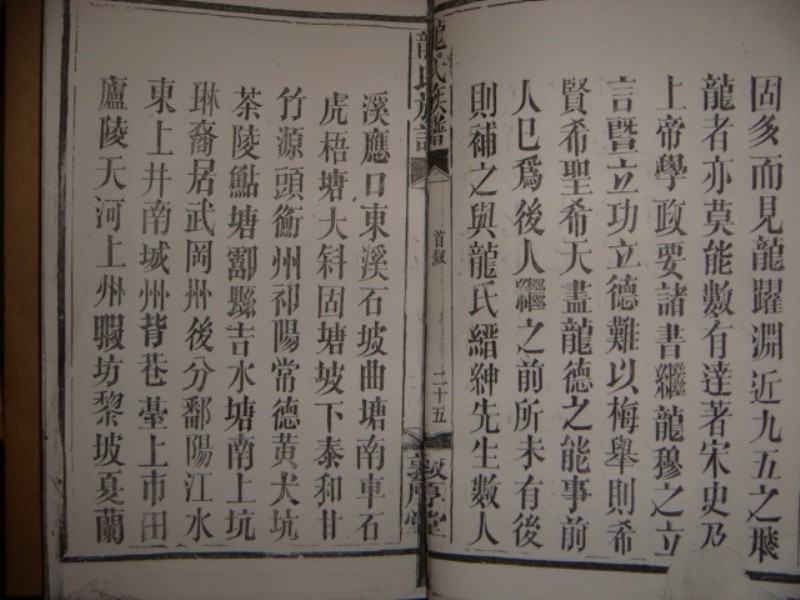 固多而見龍躍淵近九五之飛
龍者亦莫能數有達著宋史乃
上帝學政要諸書繼龍穆之立
言暨立功立德難以梅舉則希
賢希聖希天盡龍德之能事前
人已爲後人繼之前所未有後
則補之與龍氏縉紳先生數人
龍氏族譜
首叙
二十五
敦厚堂
溪應口東溪石坡曲塘南車石
虎梧塘大斜固塘坡下泰和甘
竹源頭衡州祁陽常德黃犬坑
茶陵鮎塘酃縣吉水塘南上坑
琳裔居武岡州後分鄱陽江水
東上井南城州背巷臺上市田
廬陵天河上州暇坊黎坡夏蘭